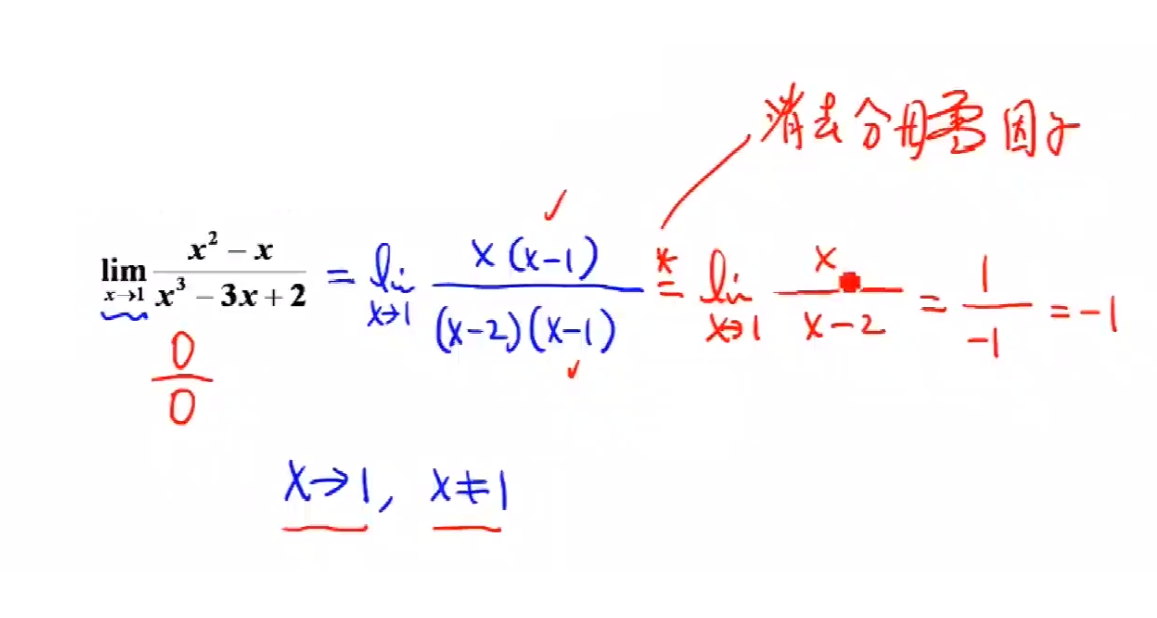 消去分母零因子
lim x→1 (x² − x)/(x³ − 3x + 2) = lim x→1 x(x−1)/((x−2)(x−1)) =* lim x→1 x/(x−2) = 1/−1 = −1
✓
✓
0/0
x→1, x≠1